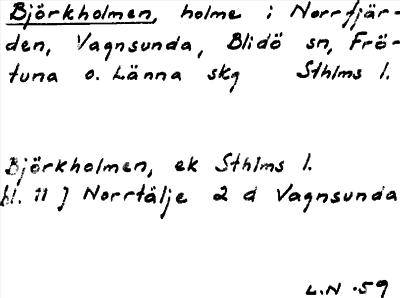 Björkholmen, holme i Norrfjär-
den, Vagnsunda, Blidö sn, Frö-
tuna o. Länna skg Sthlms l.
Björkholmen, ek Sthlms l.
bl. 11 J Norrtälje 2 d Vagnsunda
L.N -59